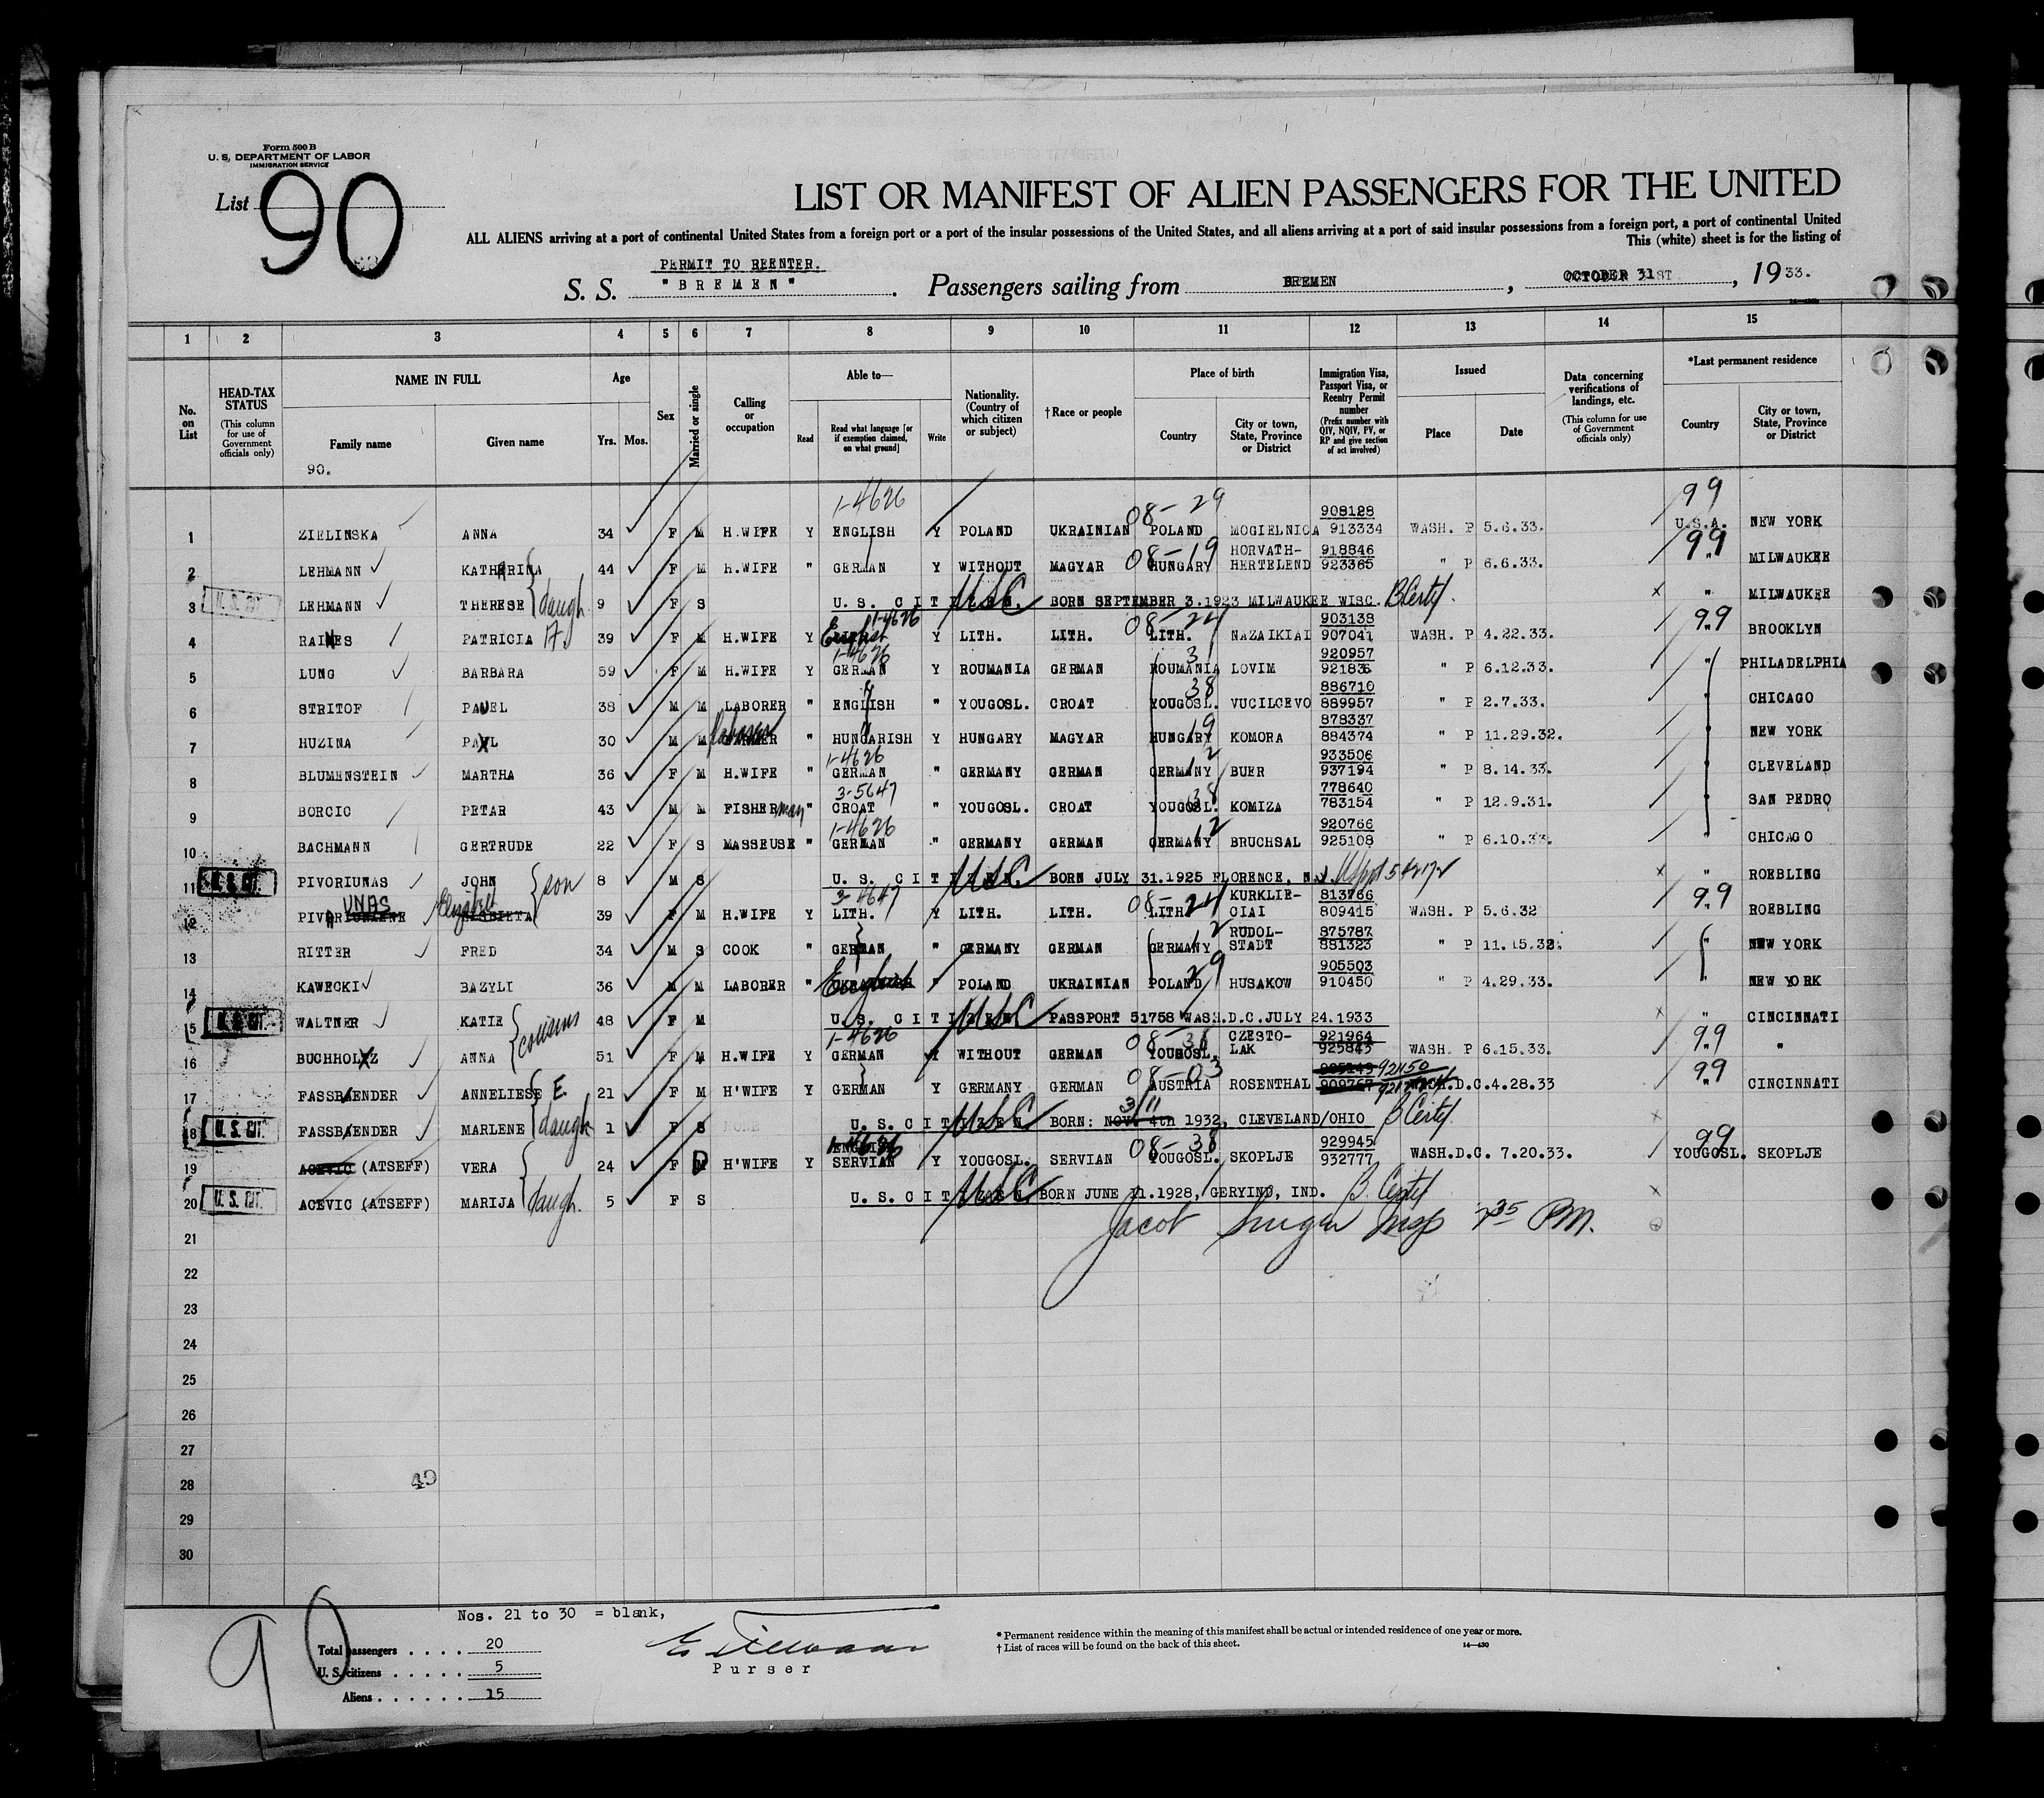 Form 500 B
U. S. DEPARTMENT OF LABOR
IMMIGRATION SERVICE
List 90
LIST OR MANIFEST OF ALIEN PASSENGERS FOR THE UNITED
ALL ALIENS arriving at a port of continental United States from a foreign port or a port of the insular possessions of the United States, and all aliens arriving at a port of said insular possessions from a foreign port, a port of continental United
This (white) sheet is for the listing of
PERMIT TO REENTER.
S. S. "BREMEN". Passengers sailing from BREMEN, OCTOBER 31ST, 1933.
1 2 3 4 5 6 7 8 9 10 11 12 13 14 15
No. on List
HEAD-TAX STATUS (This column for use of Government officials only)
NAME IN FULL
Family name Given name
Age Yrs. Mos.
Sex
Married or single
Calling or occupation
Able to—
Read Read what language [or if exemption claimed, on what ground] Write
Nationality. (Country of which citizen or subject)
†Race or people
Place of birth
Country City or town, State, Province or District
Immigration Visa, Passport Visa, or Reentry Permit number (Prefix number with QIV, NQIV, PV, or RP and give section of act involved)
Issued
Place Date
Data concerning verifications of landings, etc. (This column for use of Government officials only)
*Last permanent residence
Country City or town, State, Province or District
90.
1-4626 08-29 908128 99
1 ZIELINSKA ANNA 34 F M H.WIFE Y ENGLISH Y POLAND UKRAINIAN POLAND MOGIELNICA 913334 WASH. P 5.6.33. U.S.A. NEW YORK
08-19 HORVATH- 918846 99
2 LEHMANN KATHRINA 44 F M H.WIFE " GERMAN Y WITHOUT MAGYAR HUNGARY HERTELEND 923365 " P 6.6.33. " MILWAUKEE
3 U.S. CIT. LEHMANN THERESE daugh. 9 F S U. S. CITIZEN. USC BORN SEPTEMBER 3.1923 MILWAUKEE WISC. B Certf. x " MILWAUKEE
1-4626 08-24 903138 99
4 RAINES PATRICIA A. 39 F M H.WIFE Y English Y LITH. LITH. LITH. NAZAIKIAI 907041 WASH. P 4.22.33. " BROOKLYN
1-4626 31 920957
5 LUNG BARBARA 59 F M H.WIFE Y GERMAN Y ROUMANIA GERMAN ROUMANIA LOVIM 921836 " P 6.12.33. " PHILADELPHIA
38 886710
6 STRITOF PAUEL 38 M M LABORER " ENGLISH " YOUGOSL. CROAT YOUGOSL. VUCILCEVO 889957 " P 2.7.33. " CHICAGO
19 878337
7 HUZINA PAXL 30 M M Laborer " HUNGARISH Y HUNGARY MAGYAR HUNGARY KOMORA 884374 " P 11.29.32. " NEW YORK
1-4626 12 933506
8 BLUMENSTEIN MARTHA 36 F M H.WIFE " GERMAN " GERMANY GERMAN GERMANY BUER 937194 " P 8.14.33. " CLEVELAND
3-5647 38 778640
9 BORCIC PETAR 43 M M FISHERman " CROAT " YOUGOSL. CROAT YOUGOSL. KOMIZA 783154 " P 12.9.31. " SAN PEDRO
1-4626 12 920766
10 BACHMANN GERTRUDE 22 F S MASSEUSE " GERMAN " GERMANY GERMAN GERMANY BRUCHSAL 925108 " P 6.10.33. " CHICAGO
11 U.S. CIT. PIVORIUNAS JOHN son 8 M S U. S. CITIZEN. USC BORN JULY 31.1925 FLORENCE, N.J. x " ROEBLING
UNAS Elizabeth 3-4647 08-24 KURKLIE- 813766 99
12 PIVORIUNIENE ELSBIETA 39 F M H.WIFE Y LITH. Y LITH. LITH. LITH. CIAI 809415 WASH. P 5.6.32 " ROEBLING
12 RUDOL- 875787
13 RITTER FRED 34 M S COOK " GERMAN " GERMANY GERMAN GERMANY STADT 881323 " P 11.15.32. " NEW YORK
29 905503
14 KAWECKI BAZYLI 36 M M LABORER " English " POLAND UKRAINIAN POLAND HUSAKOW 910450 " P 4.29.33. " NEW YORK
15 U.S. CIT. WALTNER KATIE cousins 48 F M U. S. CITIZEN USC PASSPORT 51758 WASH.D.C.JULY 24.1933 x " CINCINNATI
1-4626 08-38 CZESTO- 921964 99
16 BUCHHOLXZ ANNA 51 F M H.WIFE Y GERMAN Y WITHOUT GERMAN YOUGOSL. LAK 925843 WASH. P 6.15.33. " "
08-03 92150 99
17 FASSBAENDER ANNELIESE E. 21 F M H'WIFE Y GERMAN Y GERMANY GERMAN AUSTRIA ROSENTHAL 909767 WASH.D.C.4.28.33 " CINCINNATI
3/11
18 U.S. CIT. FASSBAENDER MARLENE daugh 1 F S NONE U. S. CITIZEN USC BORN: NOV. 4th 1932, CLEVELAND/OHIO B Certf x
ENGLISH 1-4626 08-38 929945 99
19 ACEVIC (ATSEFF) VERA 24 F D H'WIFE Y SERVIAN Y YOUGOSL. SERVIAN YOUGOSL. SKOPLJE 932777 WASH.D.C. 7.20.33. YOUGOSL. SKOPLJE
20 U.S. CIT. ACEVIC (ATSEFF) MARIJA daugh. 5 F S U. S. CITIZEN USC BORN JUNE 11.1928, GERYIND, IND. B Certf x
Jacot Insp 7 35 PM.
21
22
23
24
25
26
27
28 40
29
30
Nos. 21 to 30 = blank,
90
Total passengers . . . . 20
U. S. citizens . . . . . 5
Aliens . . . . . . 15
Purser
* Permanent residence within the meaning of this manifest shall be actual or intended residence of one year or more.
† List of races will be found on the back of this sheet. 14—430